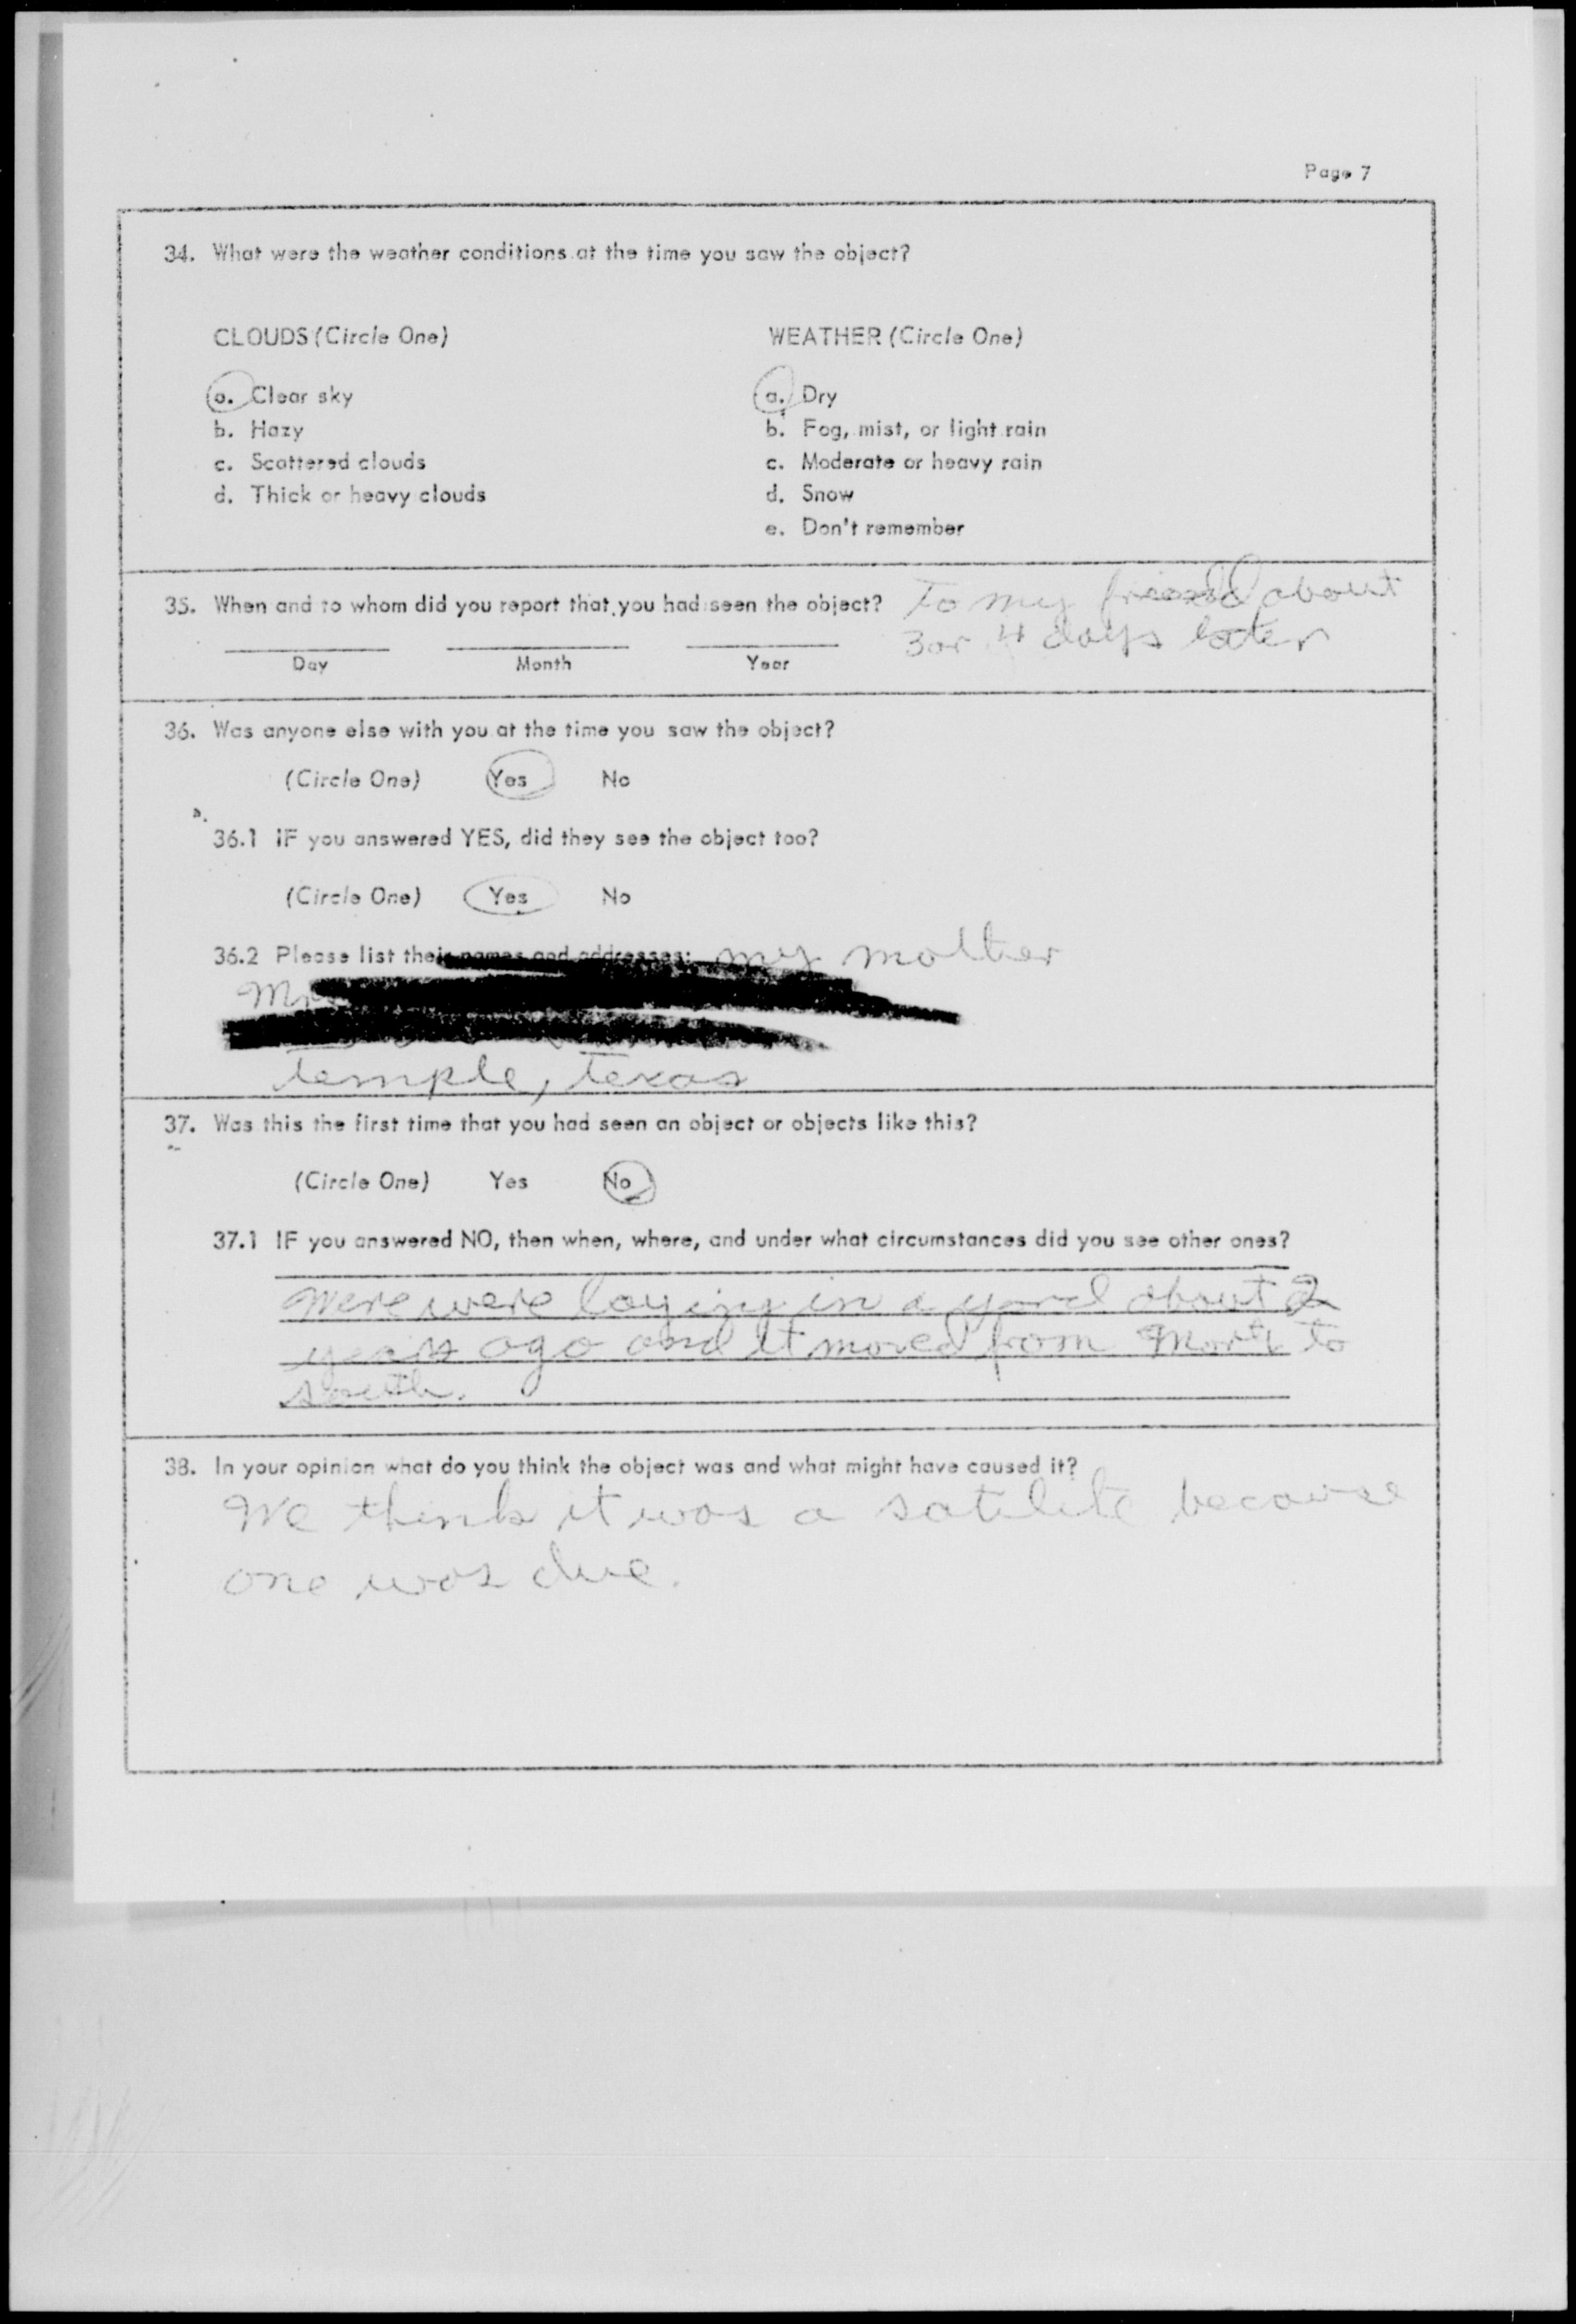 Page 7
34. What were the weather conditions at the time you saw the object?
CLOUDS (Circle One) WEATHER (Circle One)
a. Clear sky a. Dry
b. Hazy b. Fog, mist, or light rain
c. Scattered clouds c. Moderate or heavy rain
d. Thick or heavy clouds d. Snow
e. Don't remember
35. When and to whom did you report that you had seen the object? To my friend about
3 or 4 days later
Day Month Year
36. Was anyone else with you at the time you saw the object?
(Circle One) Yes No
36.1 IF you answered YES, did they see the object too?
(Circle One) Yes No
36.2 Please list their names and addresses: my mother
Temple, Texas
37. Was this the first time that you had seen an object or objects like this?
(Circle One) Yes No
37.1 IF you answered NO, then when, where, and under what circumstances did you see other ones?
Were were laying in a yard about 2
years ago and it moved from North to
south.
38. In your opinion what do you think the object was and what might have caused it?
We think it was a satilite because
one was due.